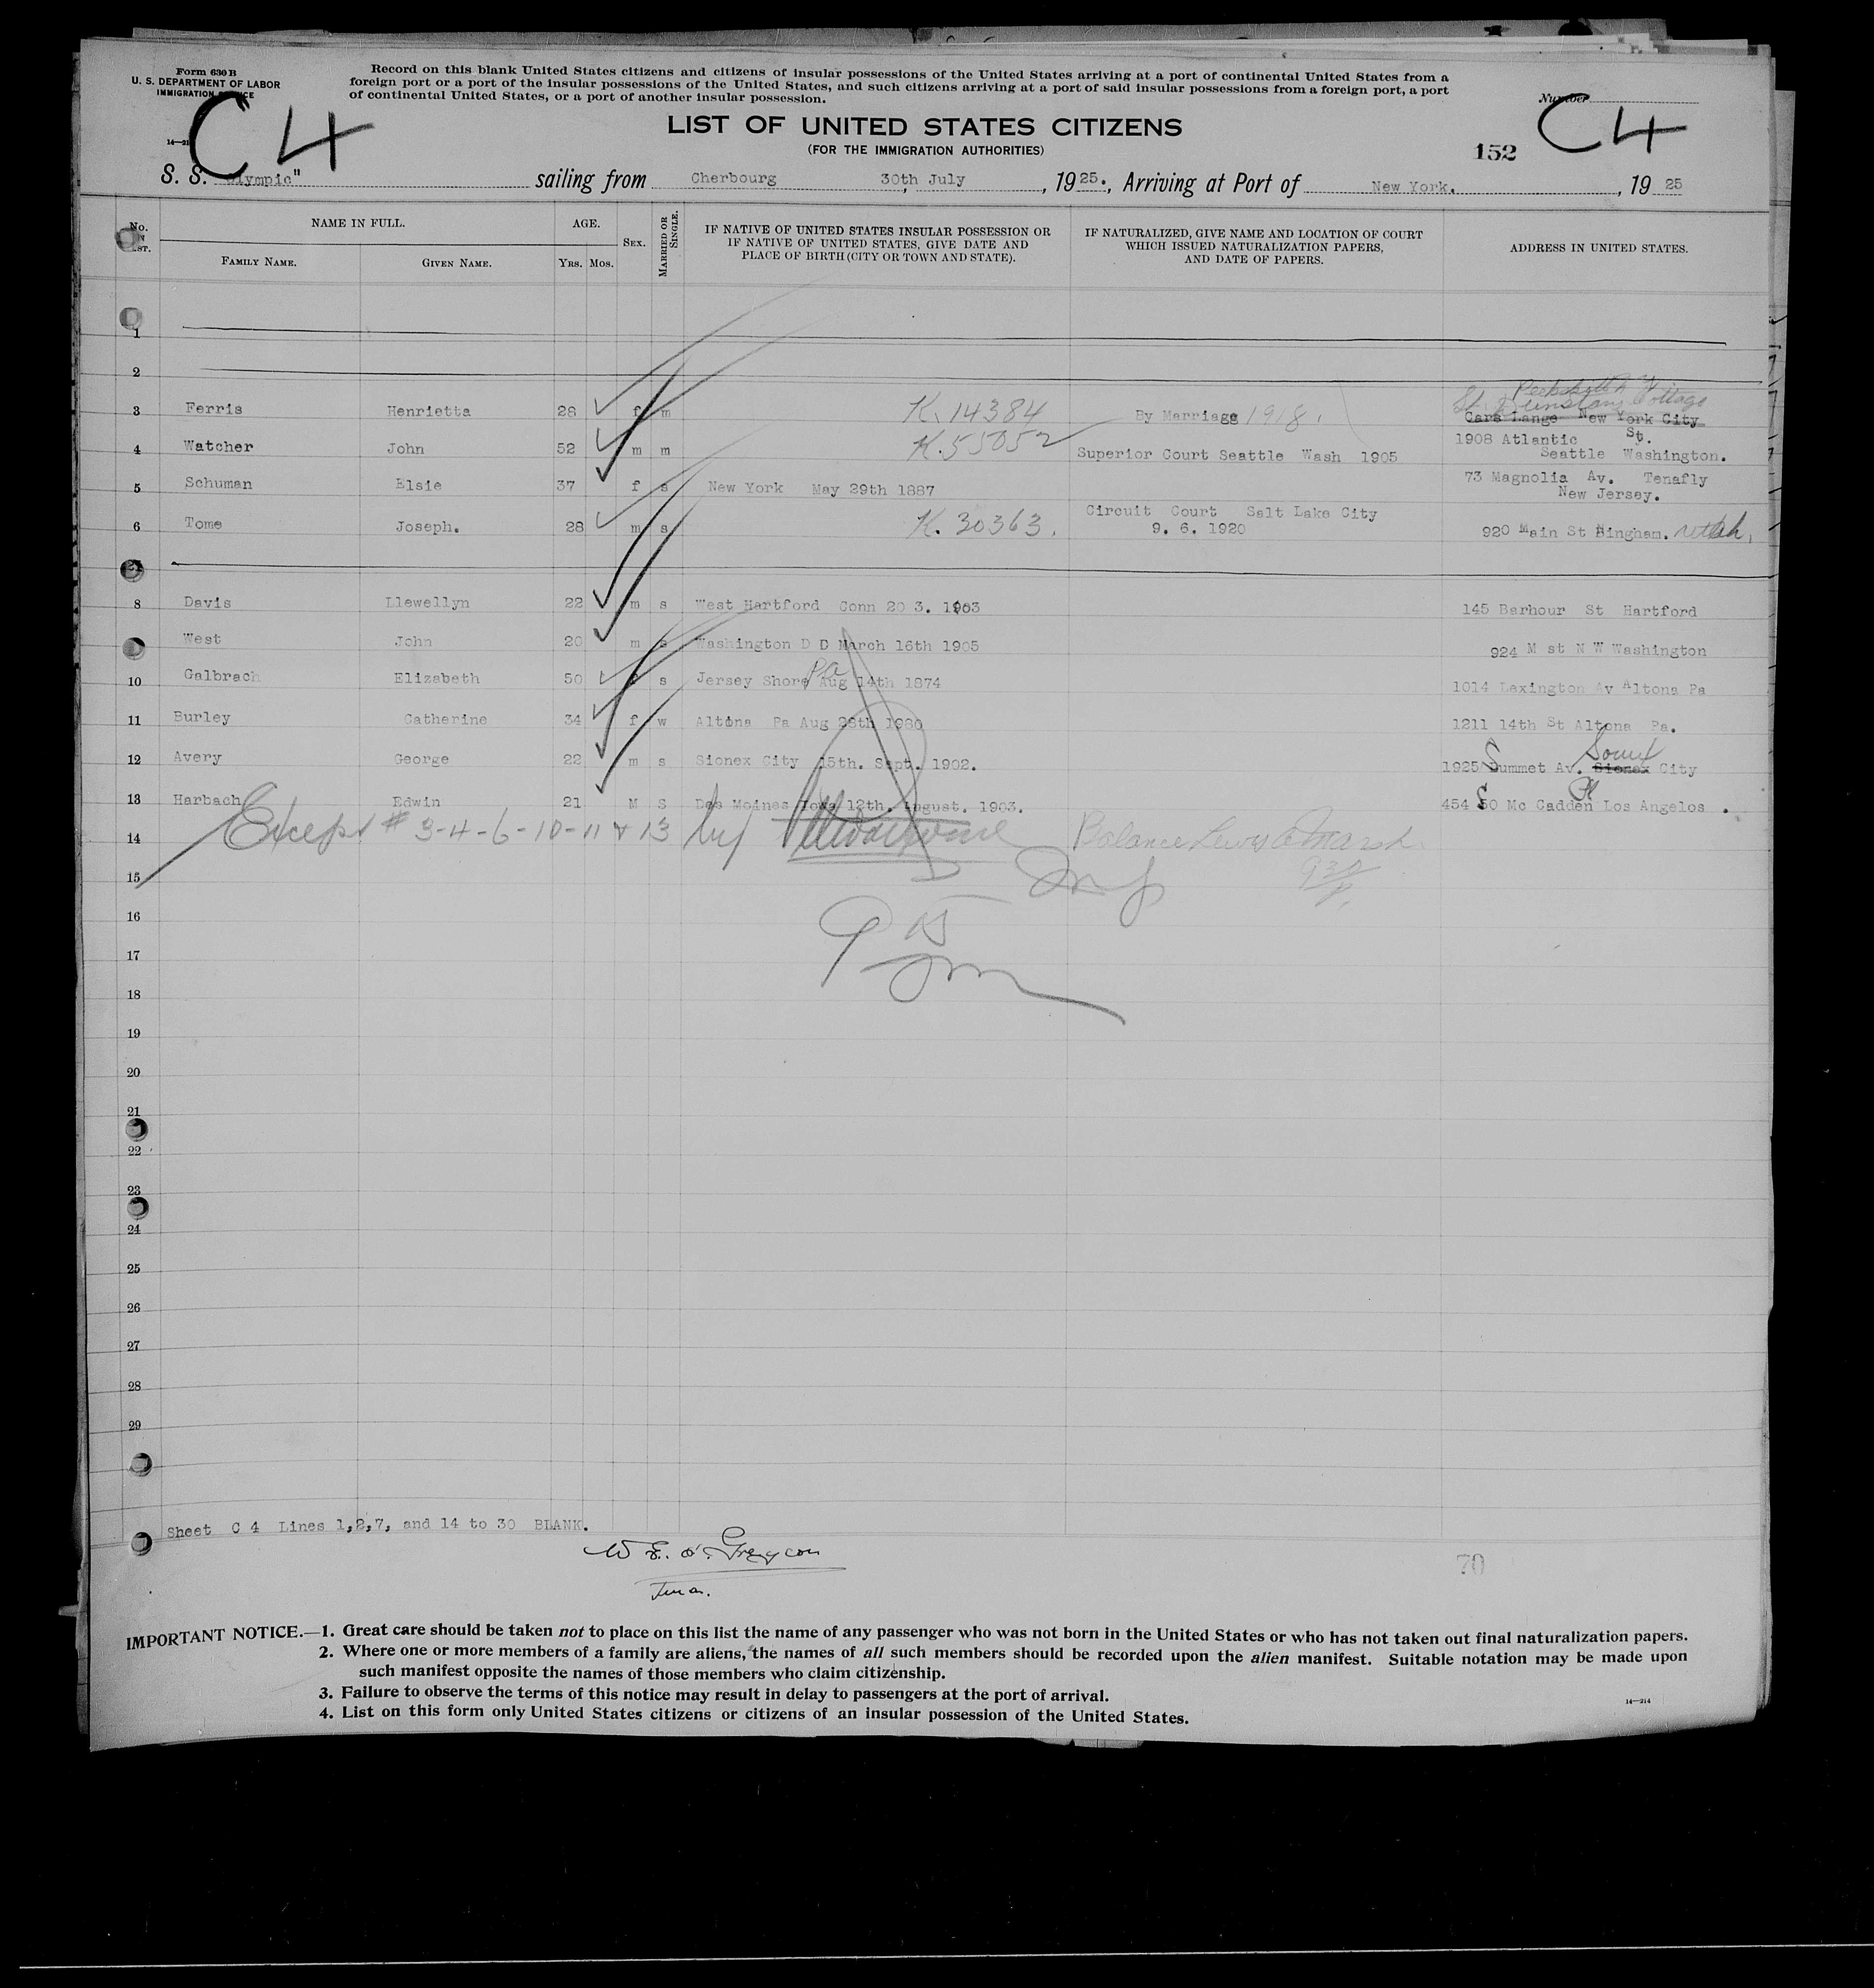 Form 630 B
U. S. DEPARTMENT OF LABOR
IMMIGRATION
Record on this blank United States citizens and citizens of insular possessions of the United States arriving at a port of continental United States from a
foreign port or a port of the insular possessions of the United States, and such citizens arriving at a port of said insular possessions from a foreign port, a port
of continental United States, or a port of another insular possession.
Number
C4
C4
LIST OF UNITED STATES CITIZENS
(FOR THE IMMIGRATION AUTHORITIES)
152
S. S. Olympic" sailing from Cherbourg 30th July, 1925., Arriving at Port of New York. , 19 25
No.
NAME IN FULL.
AGE.
SEX.
MARRIED OR SINGLE.
IF NATIVE OF UNITED STATES INSULAR POSSESSION OR
IF NATIVE OF UNITED STATES, GIVE DATE AND
PLACE OF BIRTH (CITY OR TOWN AND STATE).
IF NATURALIZED, GIVE NAME AND LOCATION OF COURT
WHICH ISSUED NATURALIZATION PAPERS,
AND DATE OF PAPERS.
ADDRESS IN UNITED STATES.
FAMILY NAME. GIVEN NAME. YRS. MOS.
1
2
Peekskill N Y
St. Dunstans Cottage
3 Ferris Henrietta 28 f m K. 14384 By Marriage 1918. Care Lange New York City
4 Watcher John 52 m m K. 55052 Superior Court Seattle Wash 1905 1908 Atlantic St.
Seattle Washington.
5 Schuman Elsie 37 f s New York May 29th 1887 73 Magnolia Av. Tenafly
New Jersey.
6 Tome Joseph. 28 m s K. 30363. Circuit Court Salt Lake City
9. 6. 1920 920 Main St Bingham. Utah.
8 Davis Llewellyn 22 m s West Hartford Conn 20 3. 1903 145 Barhour St Hartford
West John 20 m s Washington D D March 16th 1905 924 M st N W Washington
10 Galbrach Elizabeth 50 f s Jersey Shore Pa Aug 14th 1874 1014 Lexington Av Altona Pa
11 Burley Catherine 34 f w Altona Pa Aug 28th 1980 1211 14th St Altona Pa.
12 Avery George 22 m s Sionex City 15th. Sept. 1902. 1925 Summet Av. Sionex Sioux City
13 Harbach Edwin 21 M S Des Moines Iowa 12th. August. 1903. 454 S0 Mc Cadden Pl Los Angelos .
14 Except # 3-4-6-10-11 & 13 by Balance Lewis Marsh
15
16
17
18
19
20
21
22
23
24
25
26
27
28
29
Sheet C 4 Lines 1,2,7, and 14 to 30 BLANK.
70
IMPORTANT NOTICE.—1. Great care should be taken not to place on this list the name of any passenger who was not born in the United States or who has not taken out final naturalization papers.
2. Where one or more members of a family are aliens, the names of all such members should be recorded upon the alien manifest. Suitable notation may be made upon
such manifest opposite the names of those members who claim citizenship.
3. Failure to observe the terms of this notice may result in delay to passengers at the port of arrival.
4. List on this form only United States citizens or citizens of an insular possession of the United States.
14—214